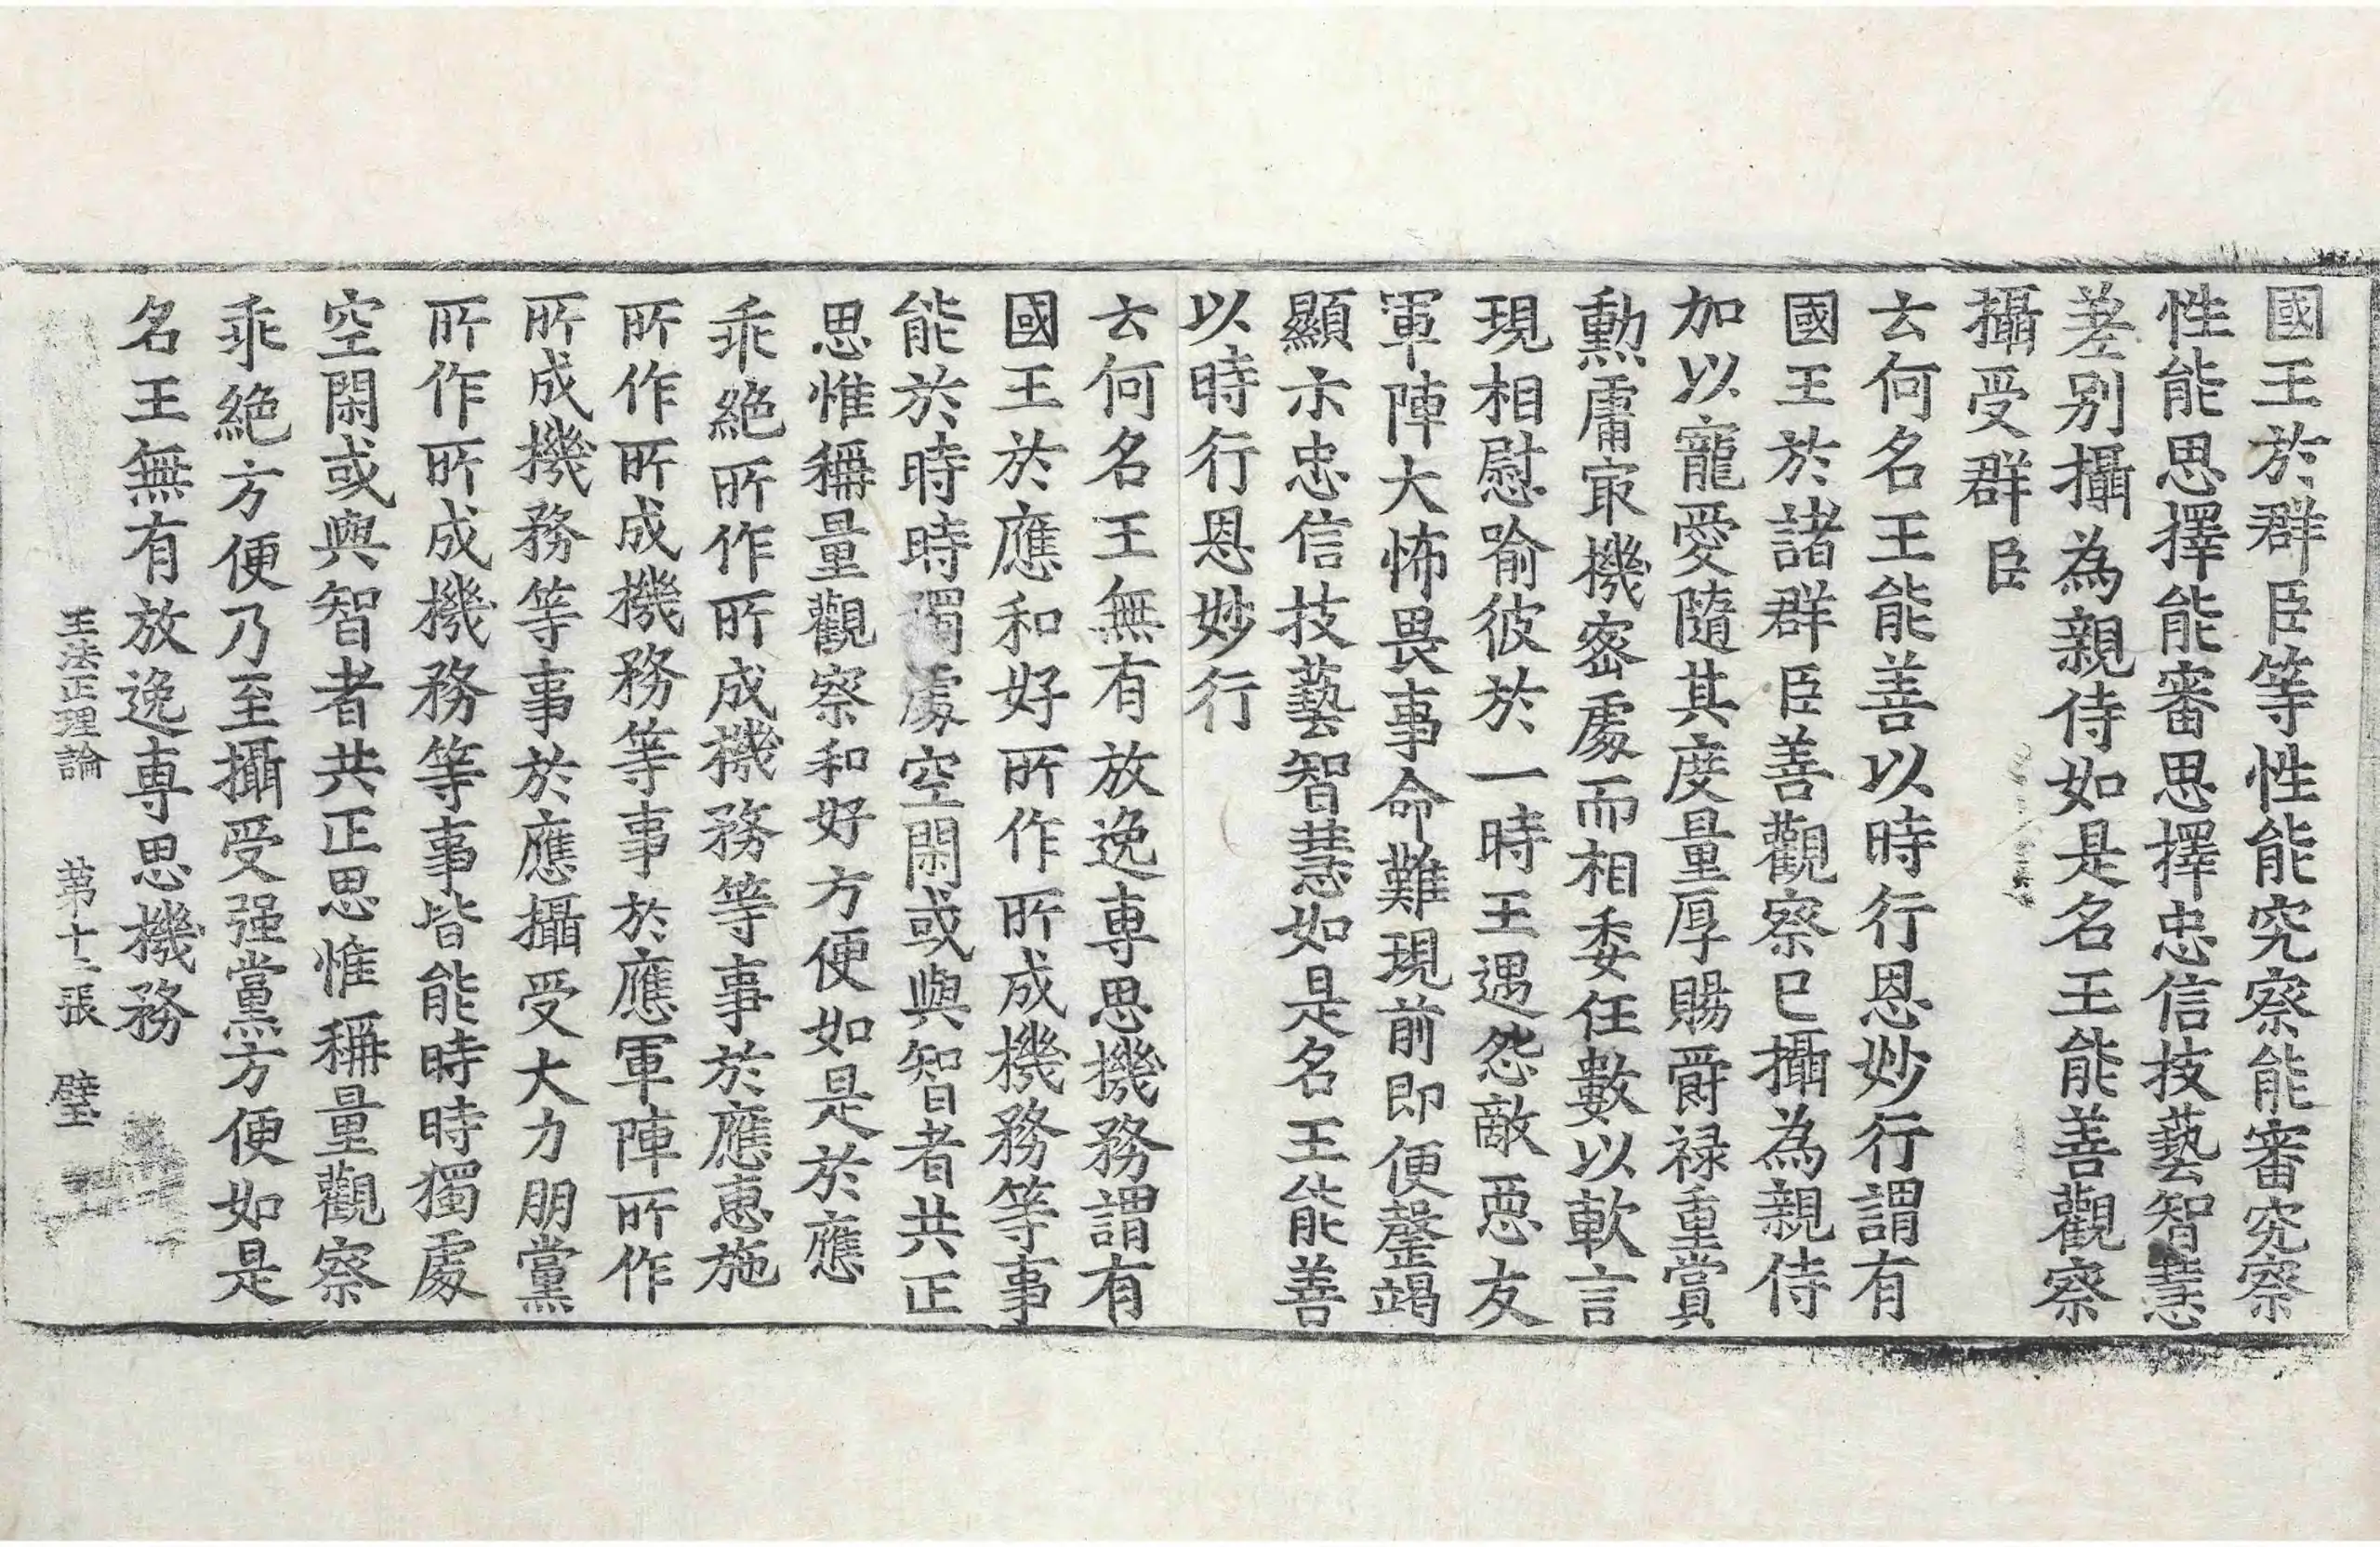 國王於群臣等性能究察能審究察
性能思擇能審思擇忠信技藝智慧
差别攝為親侍如是名王能善觀察
攝受群臣
云何名王能善以時行恩妙行謂有
國王於諸群臣善觀察已攝為親侍
加以寵愛隨其度量厚賜爵禄重賞
勳庸㝡機密處而相委任數以軟言
現相慰喻彼於一時王遇怨敵惡友
軍陣大怖畏事命難現前即便罄竭
顯示忠信技藝智慧如是名王能善
以時行恩妙行
云何名王無有放逸専思機務謂有
國王於應和好所作所成機務等事
能於時時獨處空閑或與智者共正
思惟稱量觀察和好方便如是於應
乖絶所作所成機務等事於應惠施
所作所成機務等事於應軍陣所作
所成機務等事於應攝受大力朋黨
所作所成機務等事皆能時時獨處
空閑或與智者共正思惟稱量觀察
乖絶方便乃至攝受强黨方便如是
名王無有放逸専思機務
王法正理論 苐十二張 璧